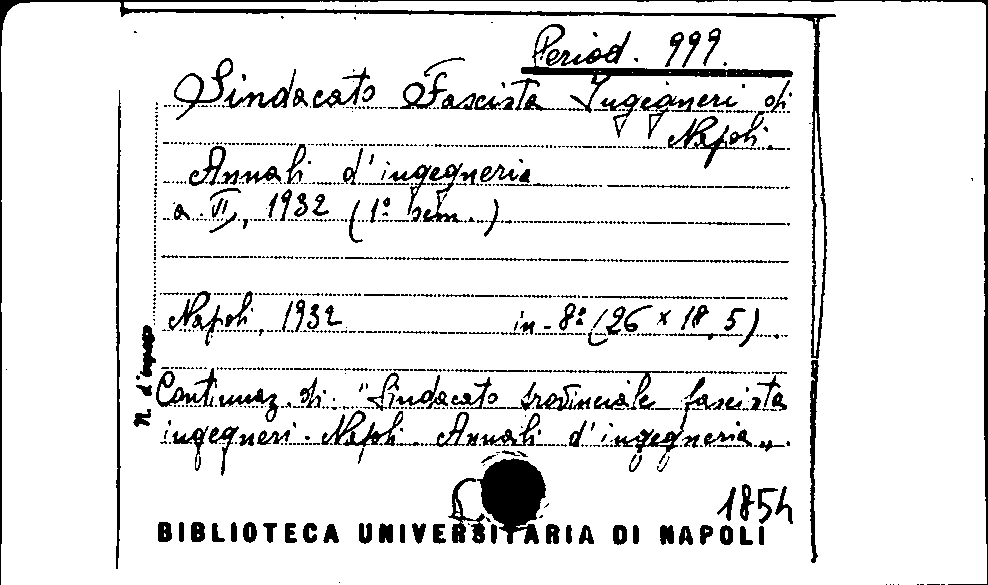 Period. 999.
Sindacato Fascista Ingegneri di
Napoli.
Annali d'ingegneria
a. VI, 1932 (1º sem.)
Napoli, 1932 in-8º (26 x 18,5).
N. d'ingresso
Continuaz. di: "Sindacato provinciale fascista
ingegneri. Napoli. Annali d'ingegneria„.
1854
BIBLIOTECA UNIVERSITARIA DI NAPOLI